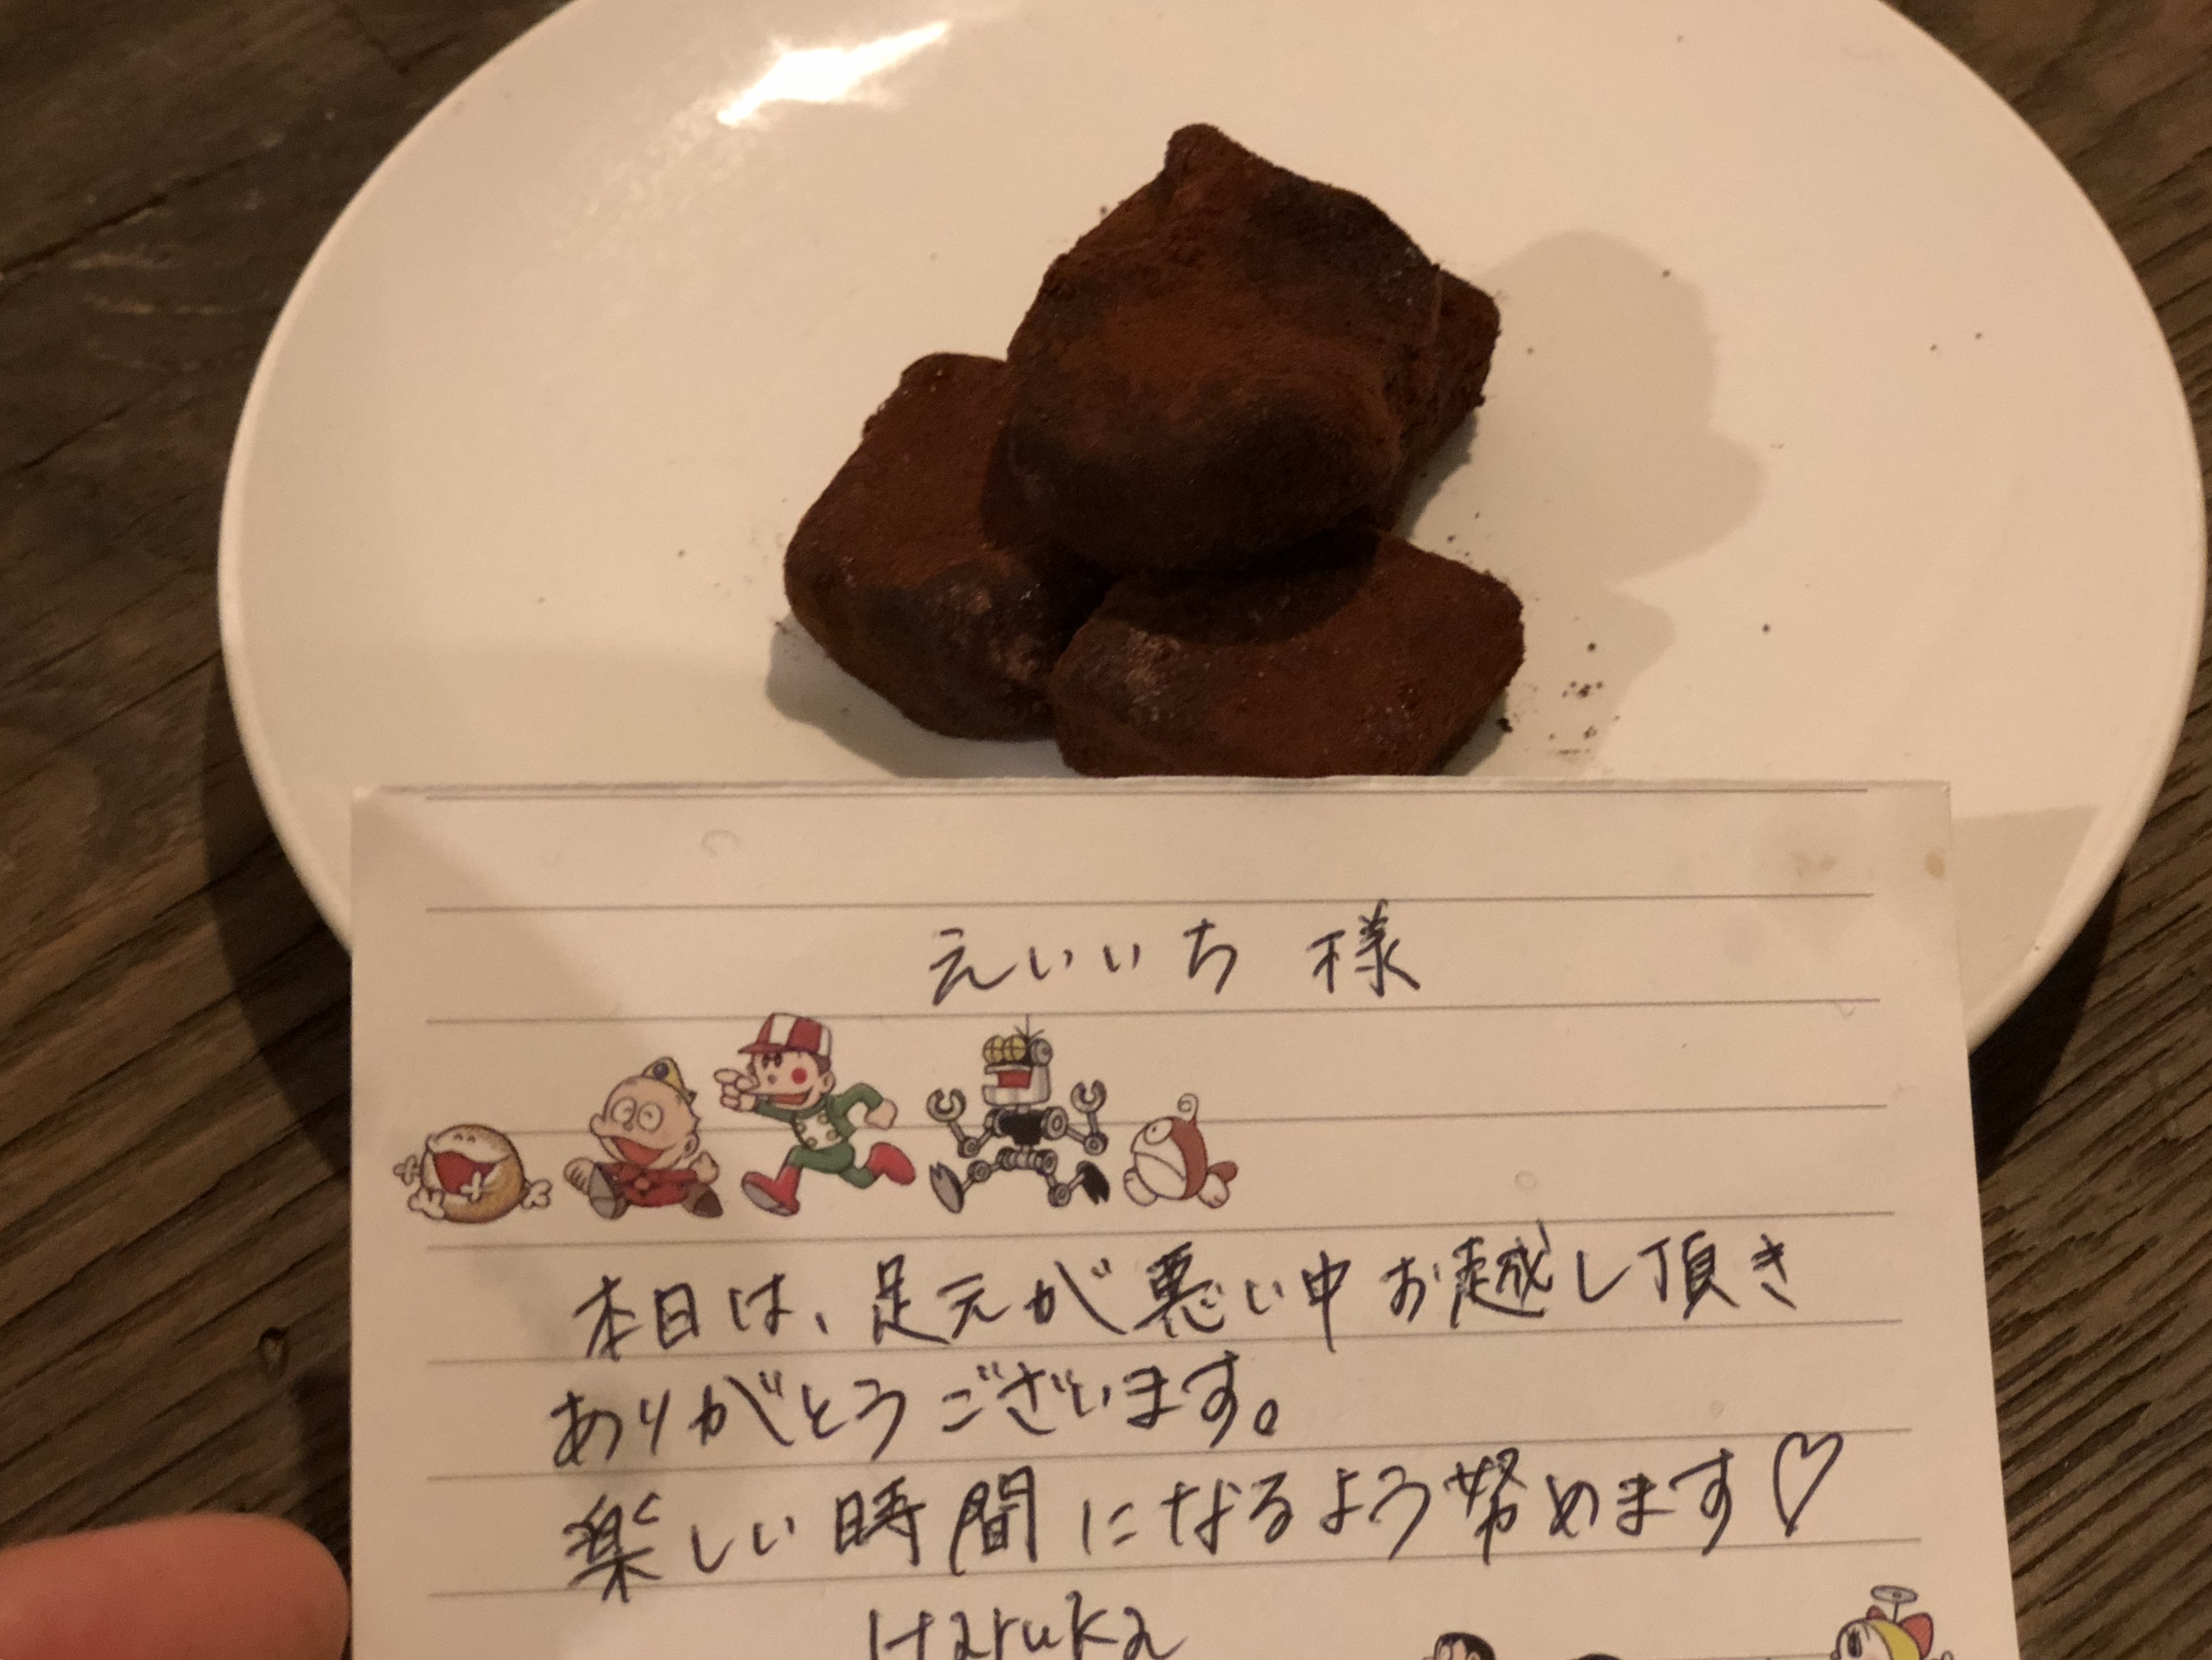 えいいち 様
本日は、足元が悪い中お越し頂き
ありがとうございます。
楽しい時間になるよう努めます♡
Haruka